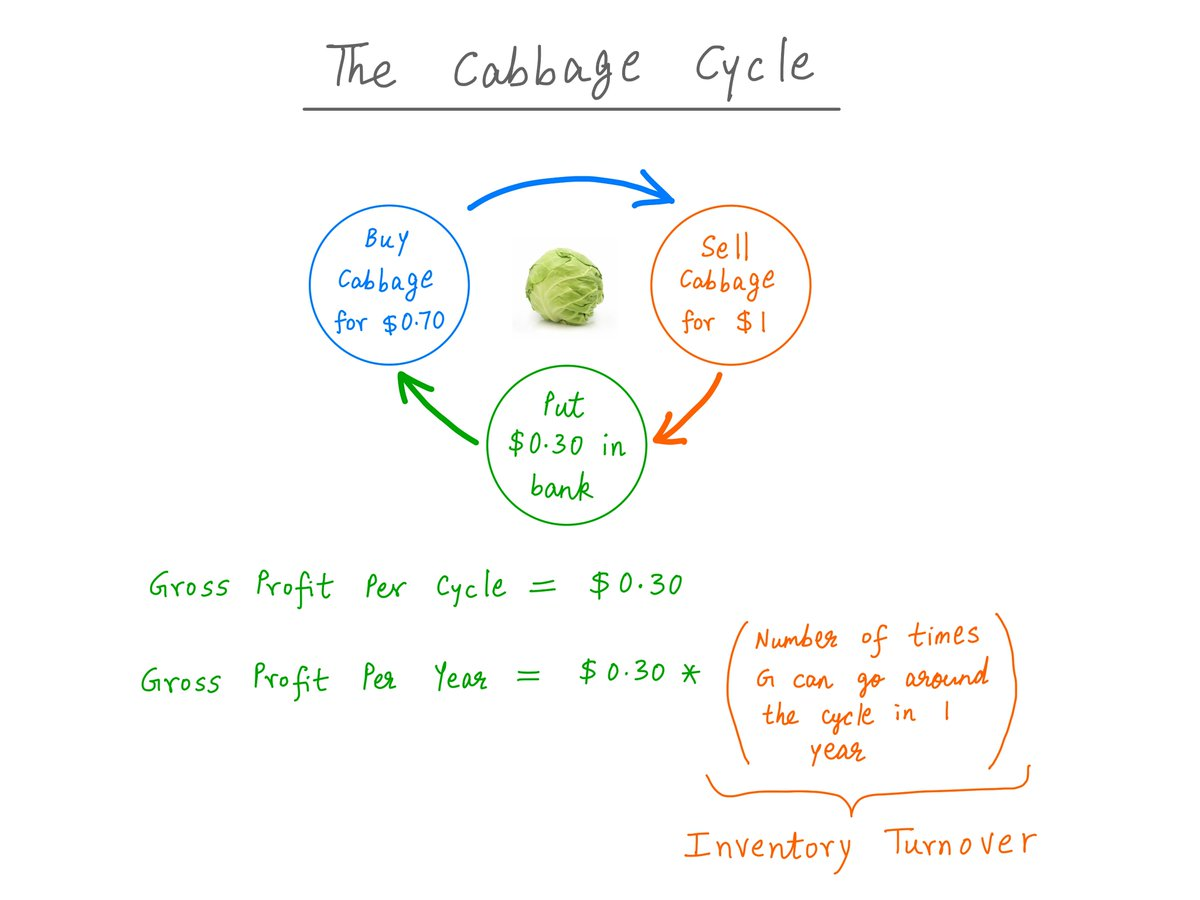 The Cabbage Cycle
Buy
Cabbage
for $0.70
Sell
Cabbage
for $1
Put
$0.30 in
bank
Gross Profit Per Cycle = $0.30
Gross Profit Per Year = $0.30 *
(Number of times
G can go around
the cycle in 1
year)
Inventory Turnover